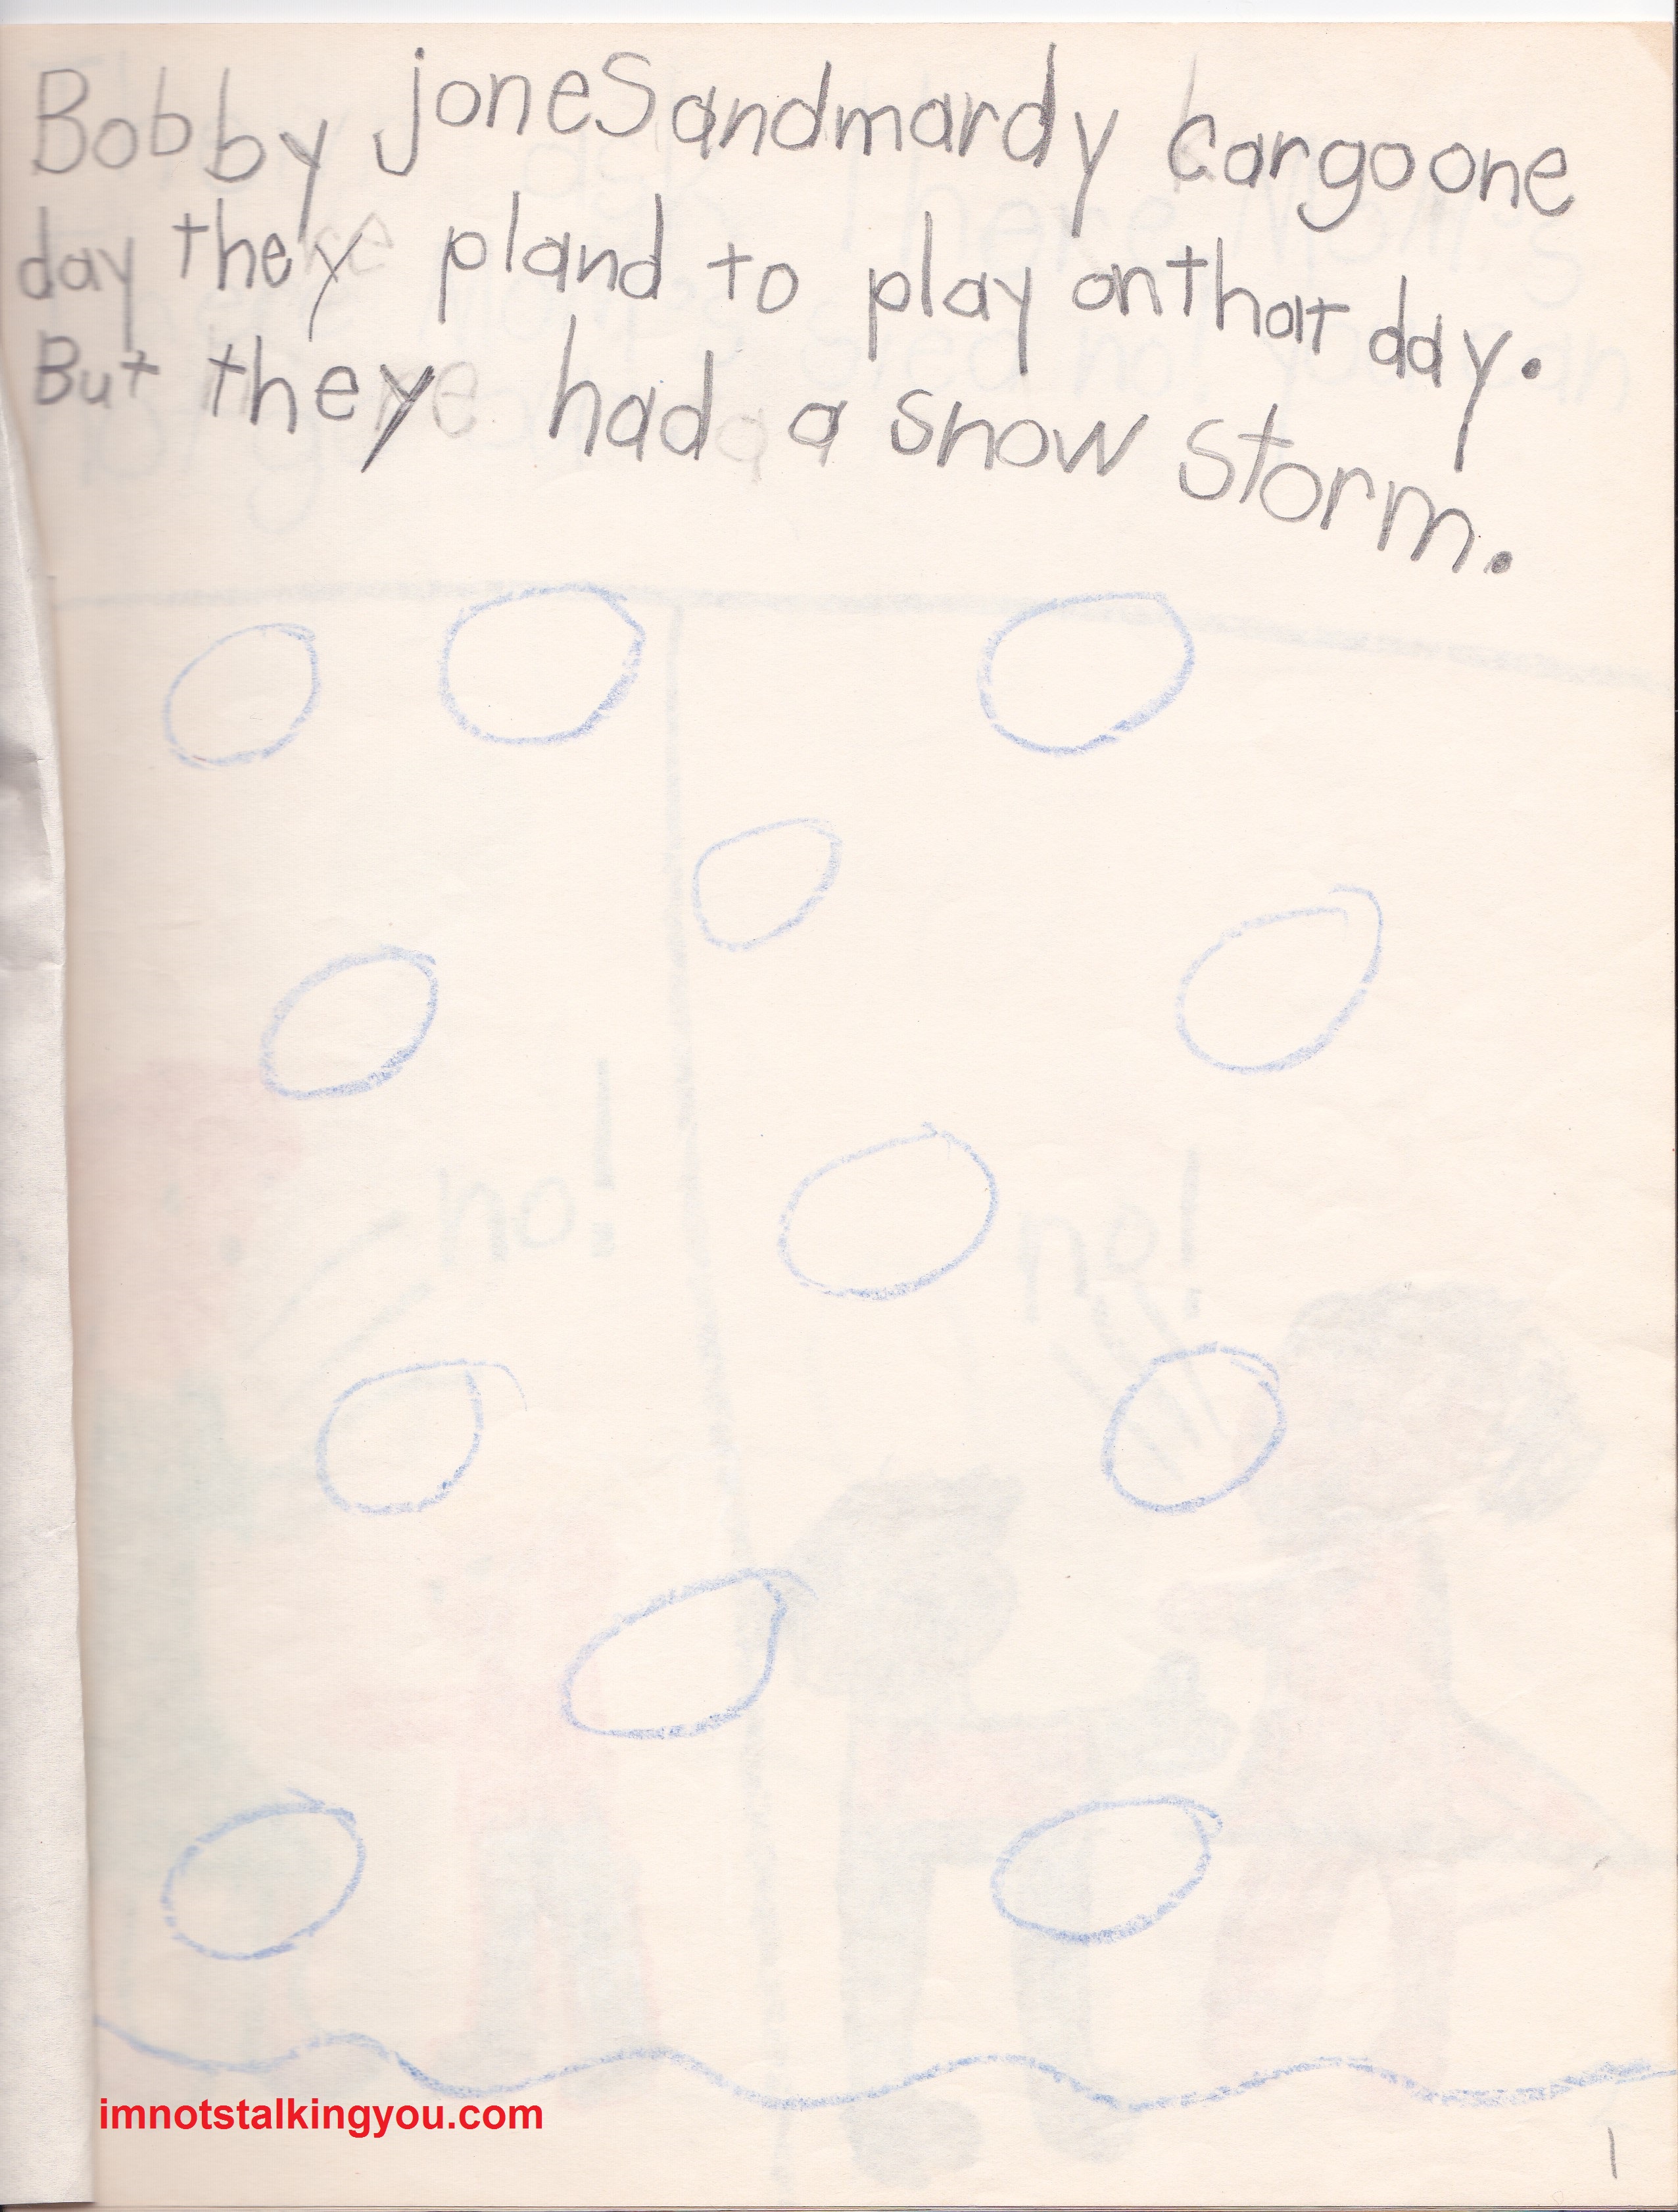 Bobby joneSandmardy Cargoone
day they pland to play onthat day.
But they had a snow storm.
no! no!
imnotstalkingyou.com
1